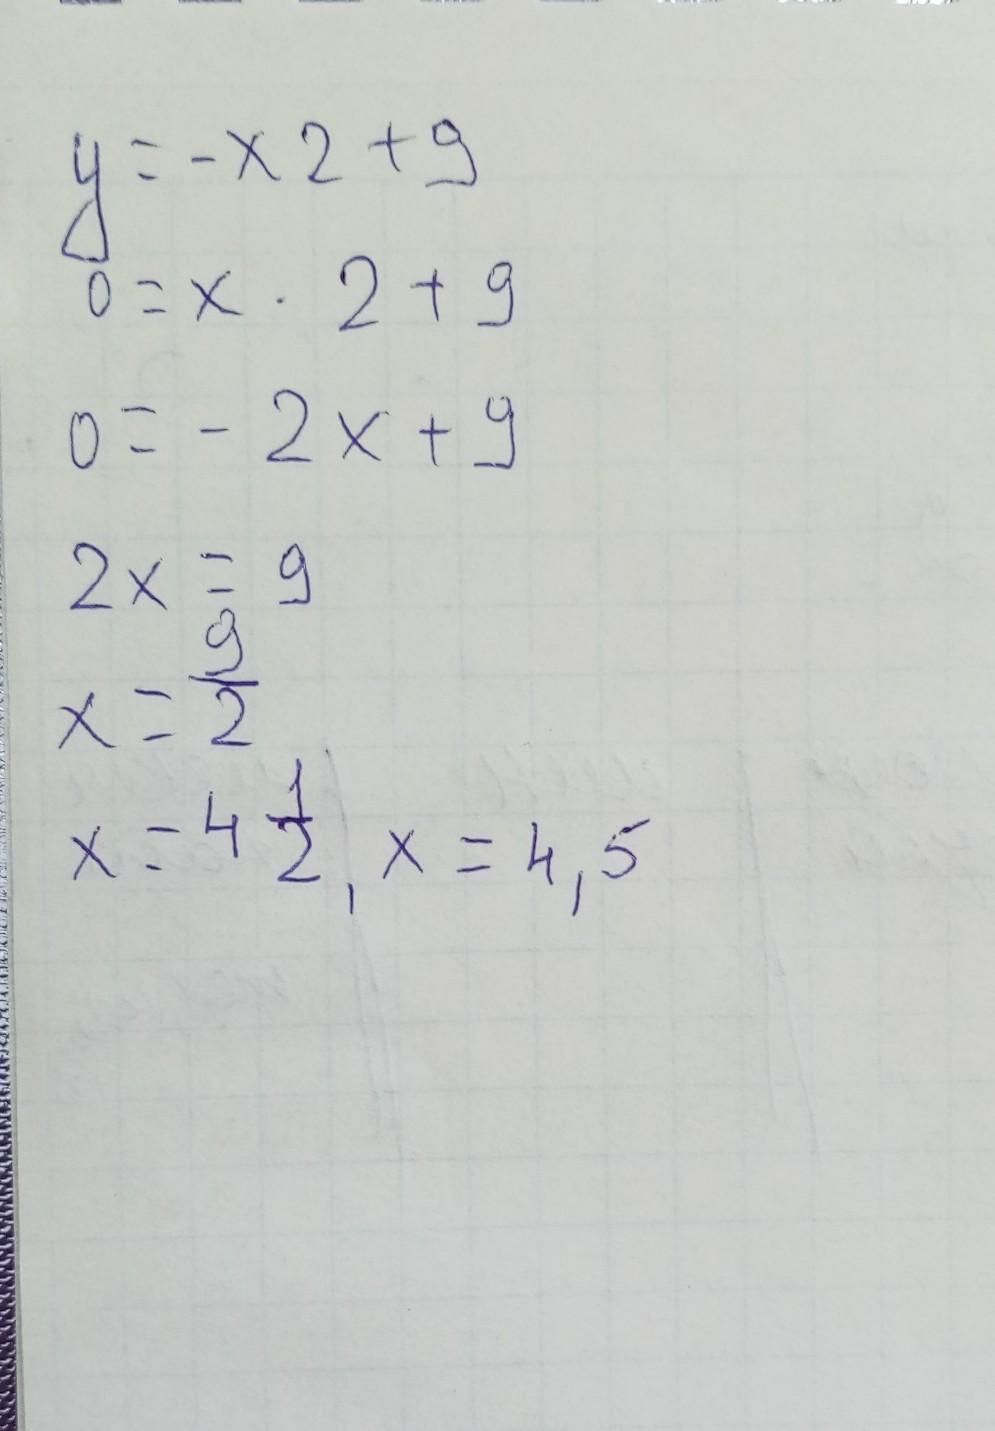 y = -x2 + 9
0 = x · 2 + 9
0 = - 2x + 9
2x = 9
x = 9/2
x = 4 1/2, x = 4,5